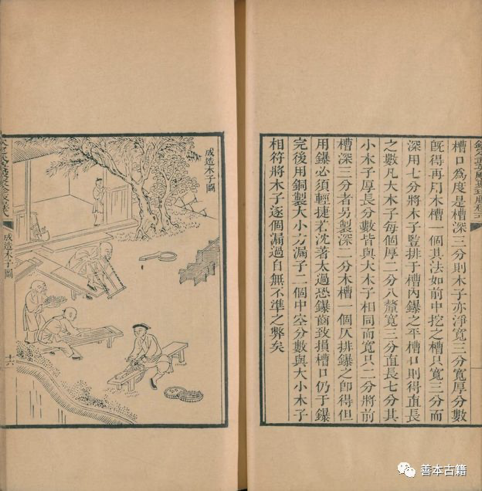 槽口為度是槽深三分則木子亦淨寬三分寬厚分數
既得再用木槽一個其法如前中挖之槽只寬三分而
深用七分將木子豎排于槽內鏍之平槽口則得直長
之數凡大木子每個厚二分八釐寬三分直長七分其
小木子厚長分數皆與大木子相同而寬只二分將前
槽深三分者另製深二分木槽一個仄排鏍之卽得但
用鏍必須輕捷若沈著太過恐鏍齒致損槽口仍于鏍
完後用銅製大小方漏子二個中空分數與大小木子
相符將木子逐個漏過自無不準之弊矣
成造木子圖
成造木子圖
善本古籍